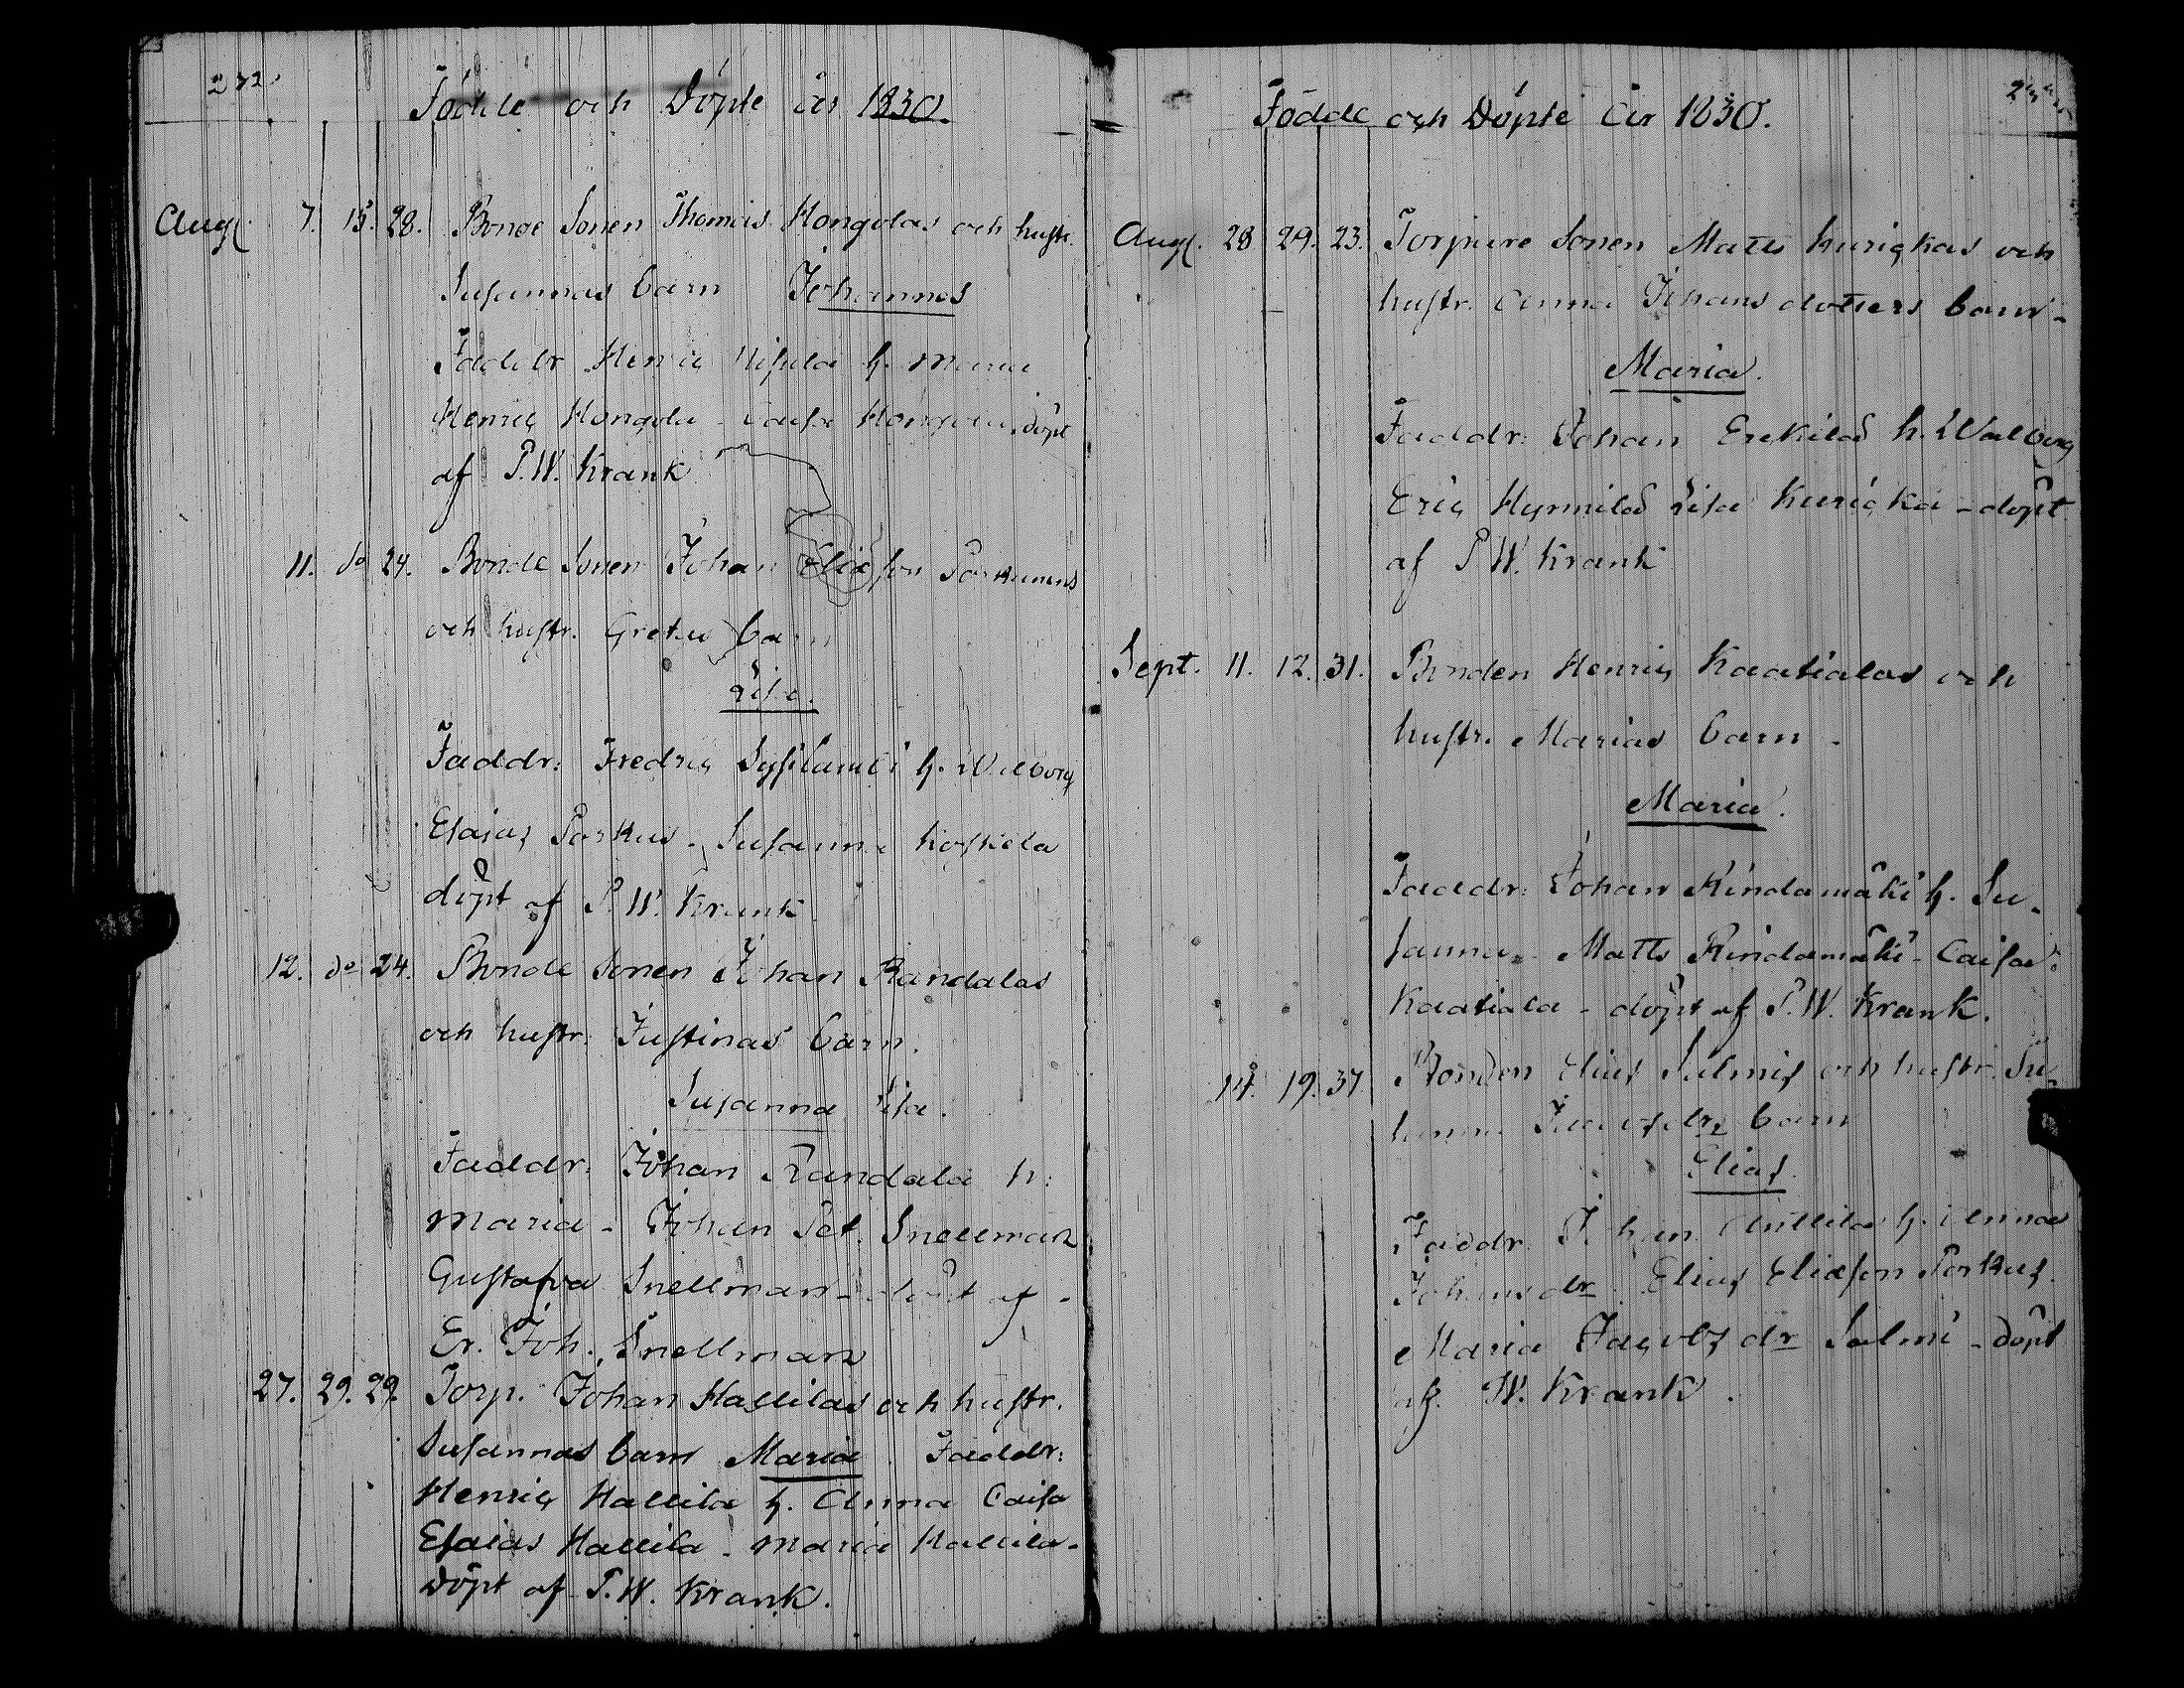 272.
Födde och Döpte år 1830.
Aug. 7. 15. 28. Bonde Sonen Thomas Hongolas och hustr.
Susannas barn Johannes
Faddr Henric h. Maria
Henric Hongola - Caisa Hongola, döpt
af P. W. Krank
11. do 24. Bonde Sonen Johan Eliasson
och hustr. Gretas barn
Lisa.
Faddr: Fredric h. Walborg
Esaias Porkus - Susanna Koskela
döpt af P. W. Krank
12. do 24. Bonde Sonen Johan Randalas
och hustr. Justinas barn.
Susanna Lisa.
Faddr: Johan Randala h:
Maria - Johan Pet. Snellman
Gustafva Snellman - döpt af -
Er. Joh. Snellman
27. 29. 29. Torp. Johan Hallilas och hustr.
Susannas barn Maria Faddr:
Henric Hallila h. Anna Caisa
Esaias Hallila - Maria Hallila -
döpt af P. W. Krank.
Födde och Döpte år 1830.
Aug. 28 29. 23. Torpare Sonen Matts Kurickas och
hustr. Anna Johans dotters barn -
Maria.
Faddr: Johan Erckilä h. Walborg
Eric Hynnilä Lisa Kuricka - döpt
af P. W. Krank
Sept. 11. 12. 31. Bonden Henric Kaatialas och
hustr. Marias barn -
Maria.
Faddr: Johan Rindamäki h. Su-
sanna - Matts Rindamäki - Caisa
Kaatiala - döpt af P. W. Krank.
14. 19. 37 Bonden Elias Salmis och hustr. Su-
sanna Jacobsdrs barn
Elias
Faddr. Johan h. Anna
Johansdr Elias Eliasson Porkus.
Maria Jacobs dr Salmi - döpt
af W. Krank.